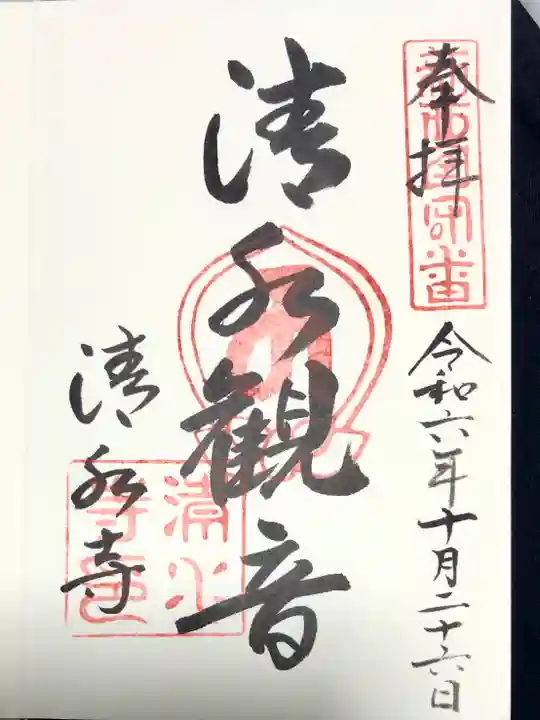 奉拝
令和六年十月二十六日
清水観音
清水寺
清水
寺印